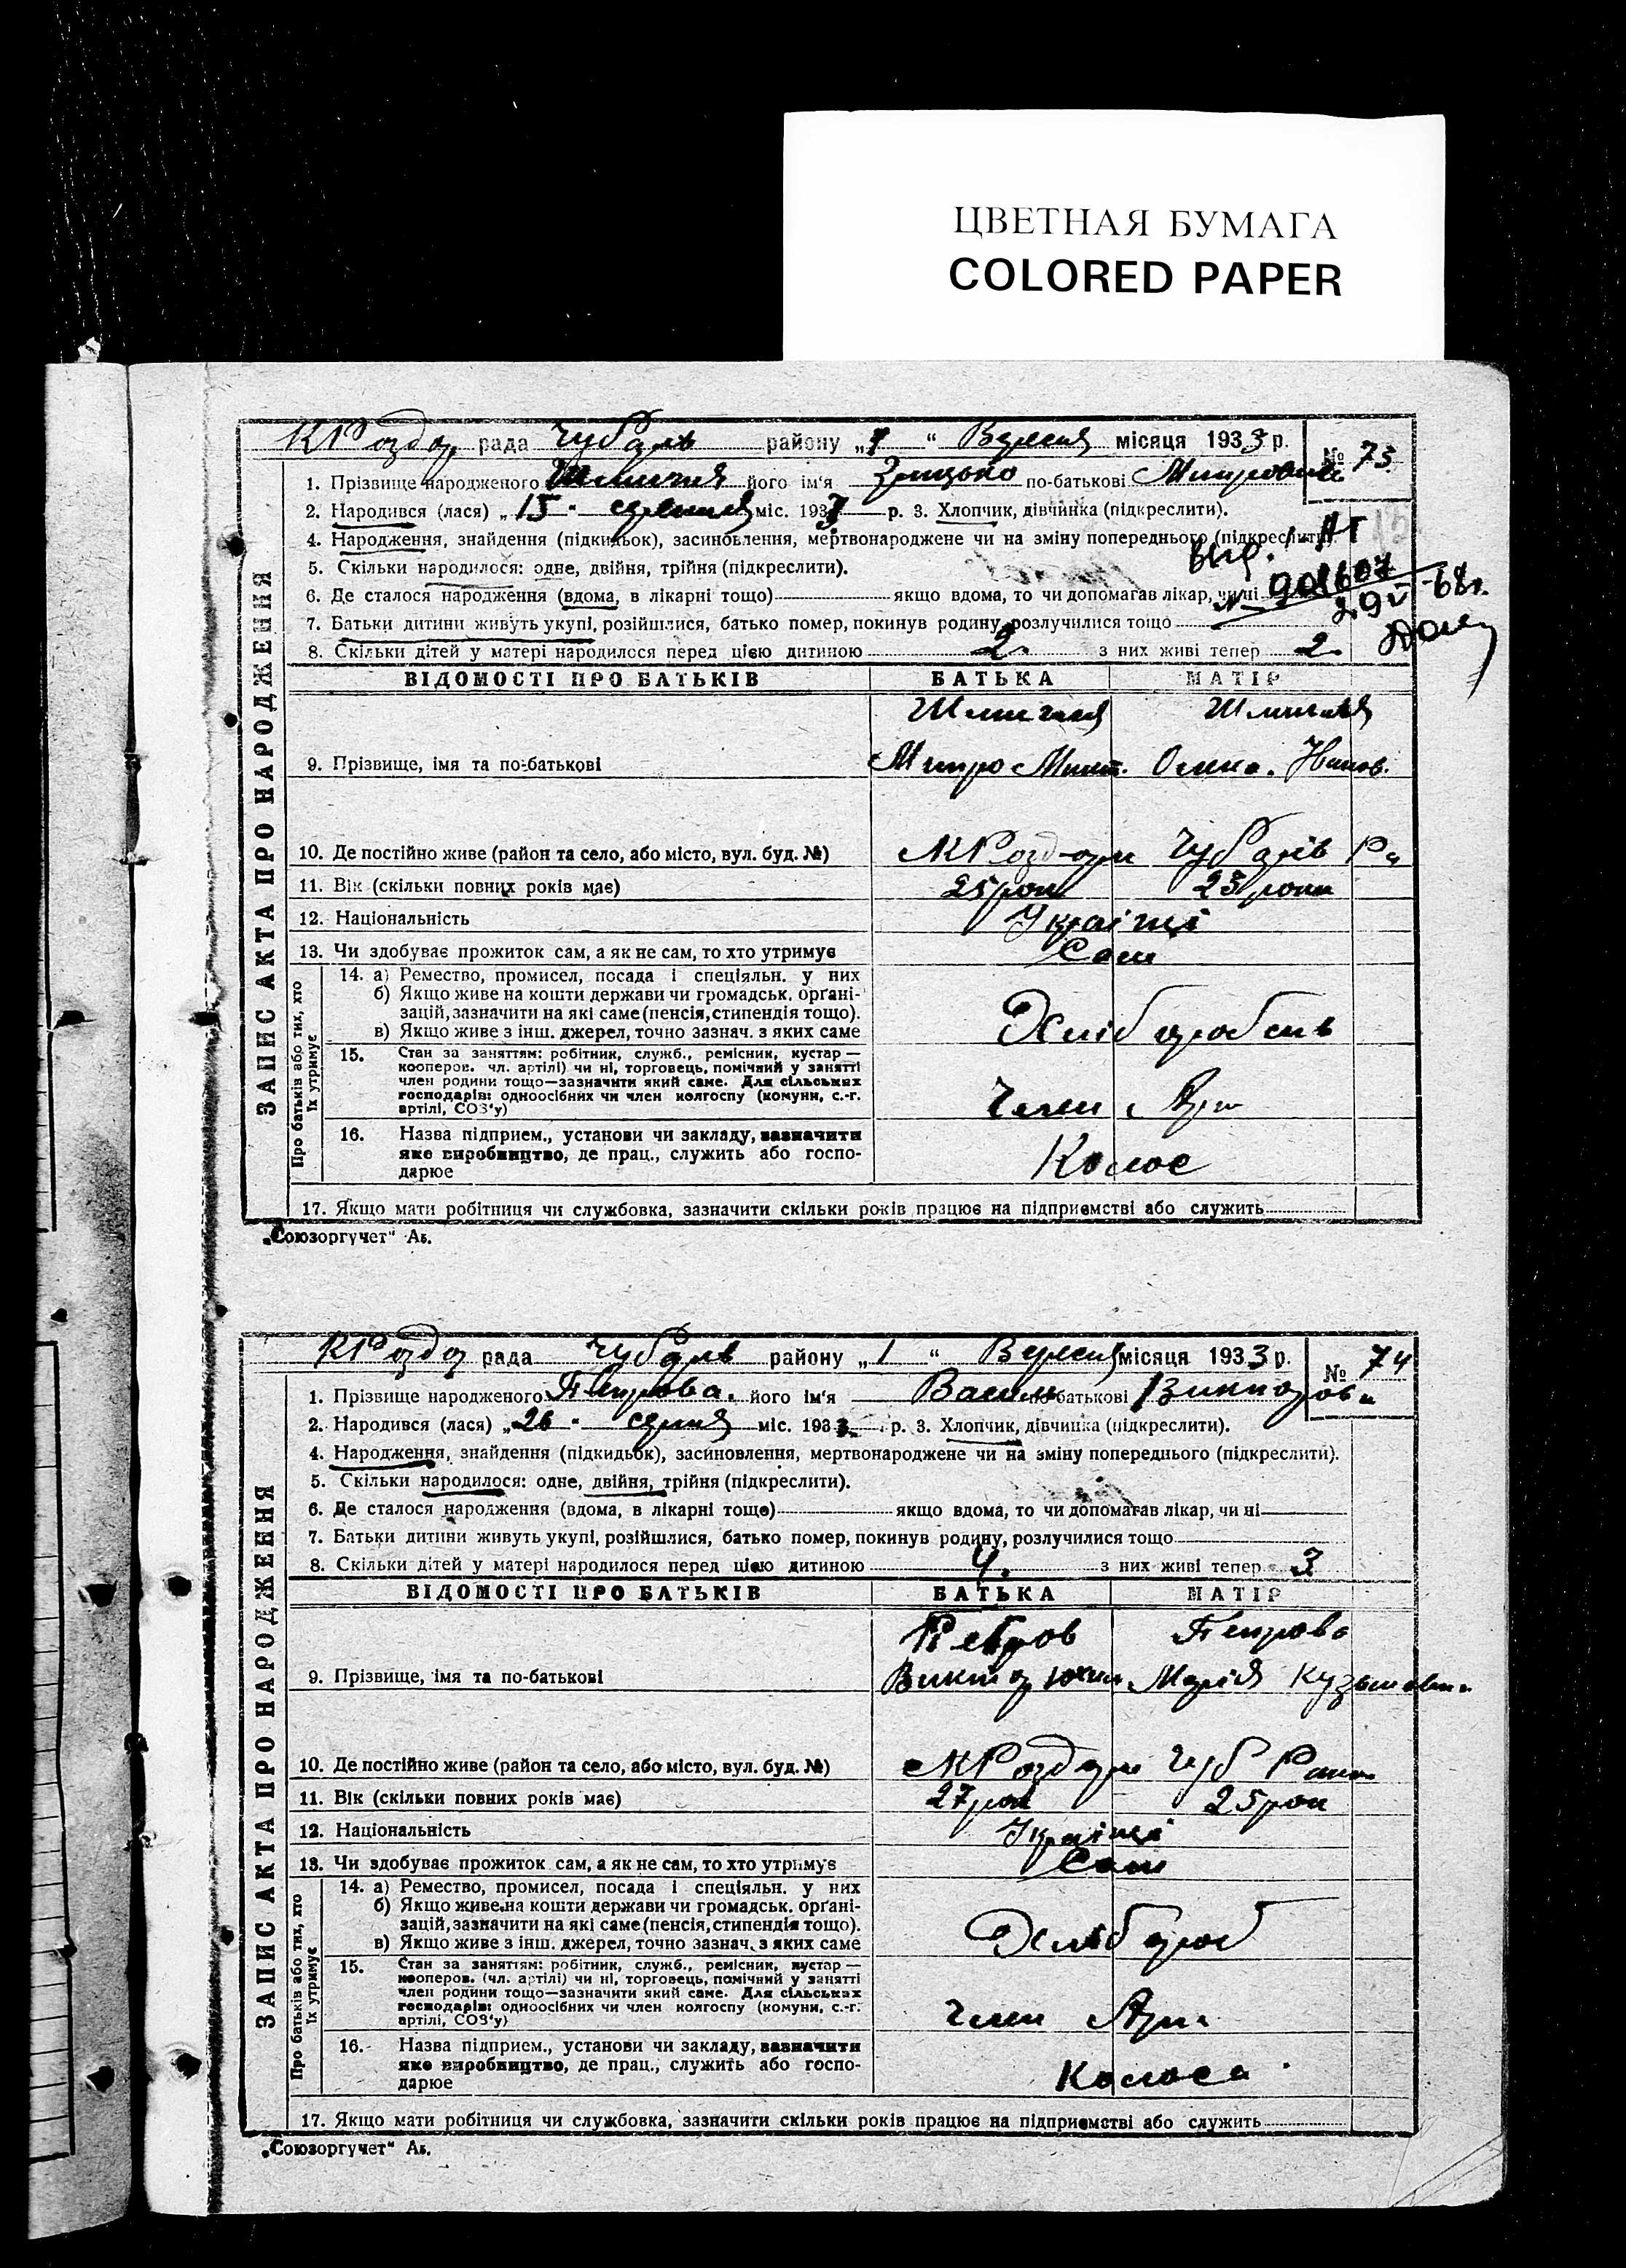 ЦВЕТНАЯ БУМАГА
COLORED PAPER
ЗАПИС АКТА ПРО НАРОДЖЕННЯ
рада Чубарь району „1“ Вересня місяця 1933 р. №
1. Прізвище народженого його ім'я Грицько по-батькові
2. Народився (лася) „15“ серпня міс. 1933 р. 3. Хлопчик, дівчинка (підкреслити).
4. Народження, знайдення (підкидьок), засиновлення, мертвонароджене чи на зміну попереднього (підкреслити).
5. Скільки народилося: одне, двійня, трійня (підкреслити).
6. Де сталося народження (вдома, в лікарні тощо) якщо вдома, то чи допомагав лікар, чи ні
7. Батьки дитини живуть укупі, розійшлися, батько помер, покинув родину, розлучилися тощо
8. Скільки дітей у матері народилося перед цією дитиною 2. з них живі тепер 2.
ВІДОМОСТІ ПРО БАТЬКІВ БАТЬКА МАТІР
9. Прізвище, імя та по-батькові
10. Де постійно живе (район та село, або місто, вул. буд. №)
11. Вік (скільки повних років має) 25 рок
12. Національність Українці
13. Чи здобуває прожиток сам, а як не сам, то хто утримує Сам
Про батьків або тих, хто їх утримує
14. а) Ремество, промисел, посада і спеціяльн. у них
б) Якщо живе на кошти держави чи громадськ. орґані-
зацій, зазначити на які саме (пенсія, стипендія тощо).
в) Якщо живе з інш. джерел, точно зазнач. з яких саме
Хлібороб
15. Стан за заняттям: робітник, служб., ремісник, кустар —
кооперов. чл. артілі) чи ні, торговець, помічний у занятті
член родини тощо—зазначити який саме. Для сільських
господарів: одноосібних чи член колгоспу (комуни, с.-г.
артілі, СОЗ'у)
Член Арт
16. Назва підприєм., установи чи закладу, зазначити
яке виробництво, де прац., служить або госпо-
дарює
Колос
17. Якщо мати робітниця чи службовка, зазначити скільки років працює на підприємстві або служить
„Союзоргучет“
ЗАПИС АКТА ПРО НАРОДЖЕННЯ
рада Чубарь району „1“ Вересня місяця 1933 р. № 74
1. Прізвище народженого Петрова. його ім'я Василь по-батькові Викторови
2. Народився (лася) „26“ серпня міс. 1933 р. 3. Хлопчик, дівчинка (підкреслити).
4. Народження, знайдення (підкидьок), засиновлення, мертвонароджене чи на зміну попереднього (підкреслити).
5. Скільки народилося: одне, двійня, трійня (підкреслити).
6. Де сталося народження (вдома, в лікарні тощо) якщо вдома, то чи допомагав лікар, чи ні
7. Батьки дитини живуть укупі, розійшлися, батько помер, покинув родину, розлучилися тощо
8. Скільки дітей у матері народилося перед цією дитиною 4. з них живі тепер 3
ВІДОМОСТІ ПРО БАТЬКІВ БАТЬКА МАТІР
Петров Петрова
9. Прізвище, імя та по-батькові Виктор Юхим Марія Кузьмовна
10. Де постійно живе (район та село, або місто, вул. буд. №) Чуб
11. Вік (скільки повних років має) 27 рок 25 рок
12. Національність Українці
13. Чи здобуває прожиток сам, а як не сам, то хто утримує Сам
Про батьків або тих, хто їх утримує
14. а) Ремество, промисел, посада і спеціяльн. у них
б) Якщо живе на кошти держави чи громадськ. орґані-
зацій, зазначити на які саме (пенсія, стипендія тощо).
в) Якщо живе з інш. джерел, точно зазнач. з яких саме
Хлібороб
15. Стан за заняттям: робітник, служб., ремісник, кустар —
кооперов. (чл. артілі) чи ні, торговець, помічний у занятті
член родини тощо—зазначити який саме. Для сільських
господарів: одноосібних чи член колгоспу (комуни, с.-г.
артілі, СОЗ'у)
Член Арт
16. Назва підприєм., установи чи закладу, зазначити
яке виробництво, де прац., служить або госпо-
дарює
Колоса
17. Якщо мати робітниця чи службовка, зазначити скільки років працює на підприємстві або служить
„Союзоргучет“